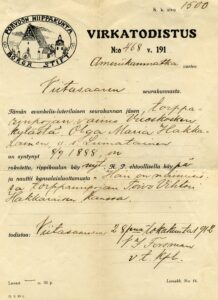 K. k. sivu 1500
PORVOON HIIPPAKUNTA
BORGÅ STIFT
VIRKATODISTUS
N:o 468 v. 191
Amerikanmatka varten
Viitasaaren
seurakunnasta.
Tämän evankelis-luterilaisen seurakunnan jäsen torppa-
rinpojan vaimo
kylästä Olga Maria Hakka-
lainen o. s.
on syntynyt 9/4 1888, on
rokotettu, rippikoulun käy nyt, H. P. ehtoollisella käy pä
ja nauttii kansalaisluottamusta. Hän on naimisis-
sa torpparinpojan Toivo Vihtori
Hakkaraisen kanssa.
todistaa: Viitasaaressa 28 p:nä lokakuuta 1912
Forsman
v. t. kplt.
Lunast p.